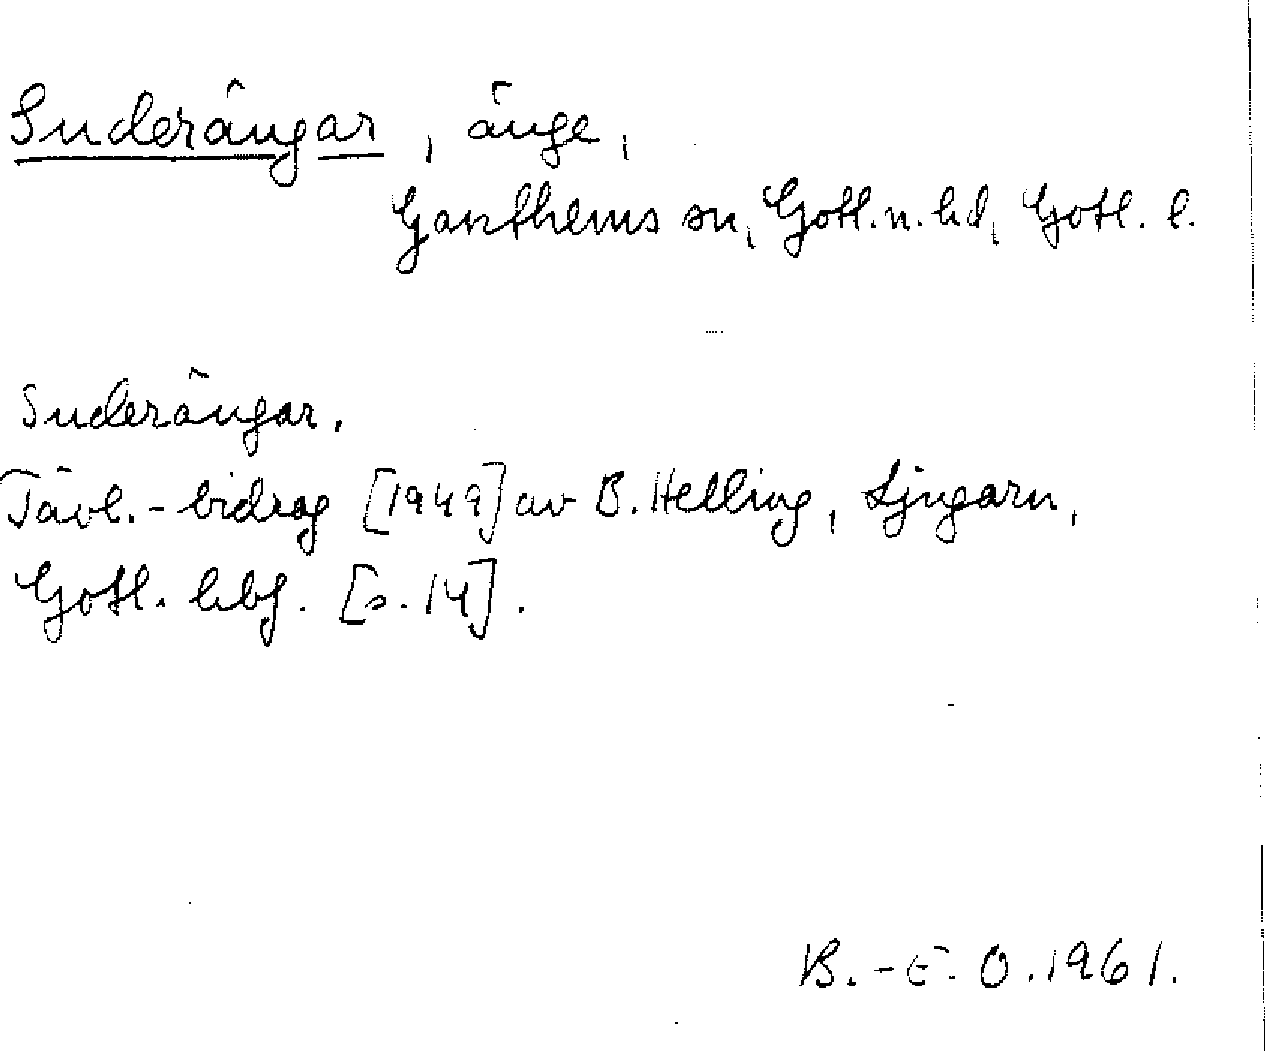 Suderängar, änge,
Ganthems sn, Gotl. n. hd, Gotl. l.
Suderängar.
Tävl.-bidrag [1949] av B. Helling, Ljugarn,
Gotl. hbf. [s. 14].
B.-E. O. 1961.